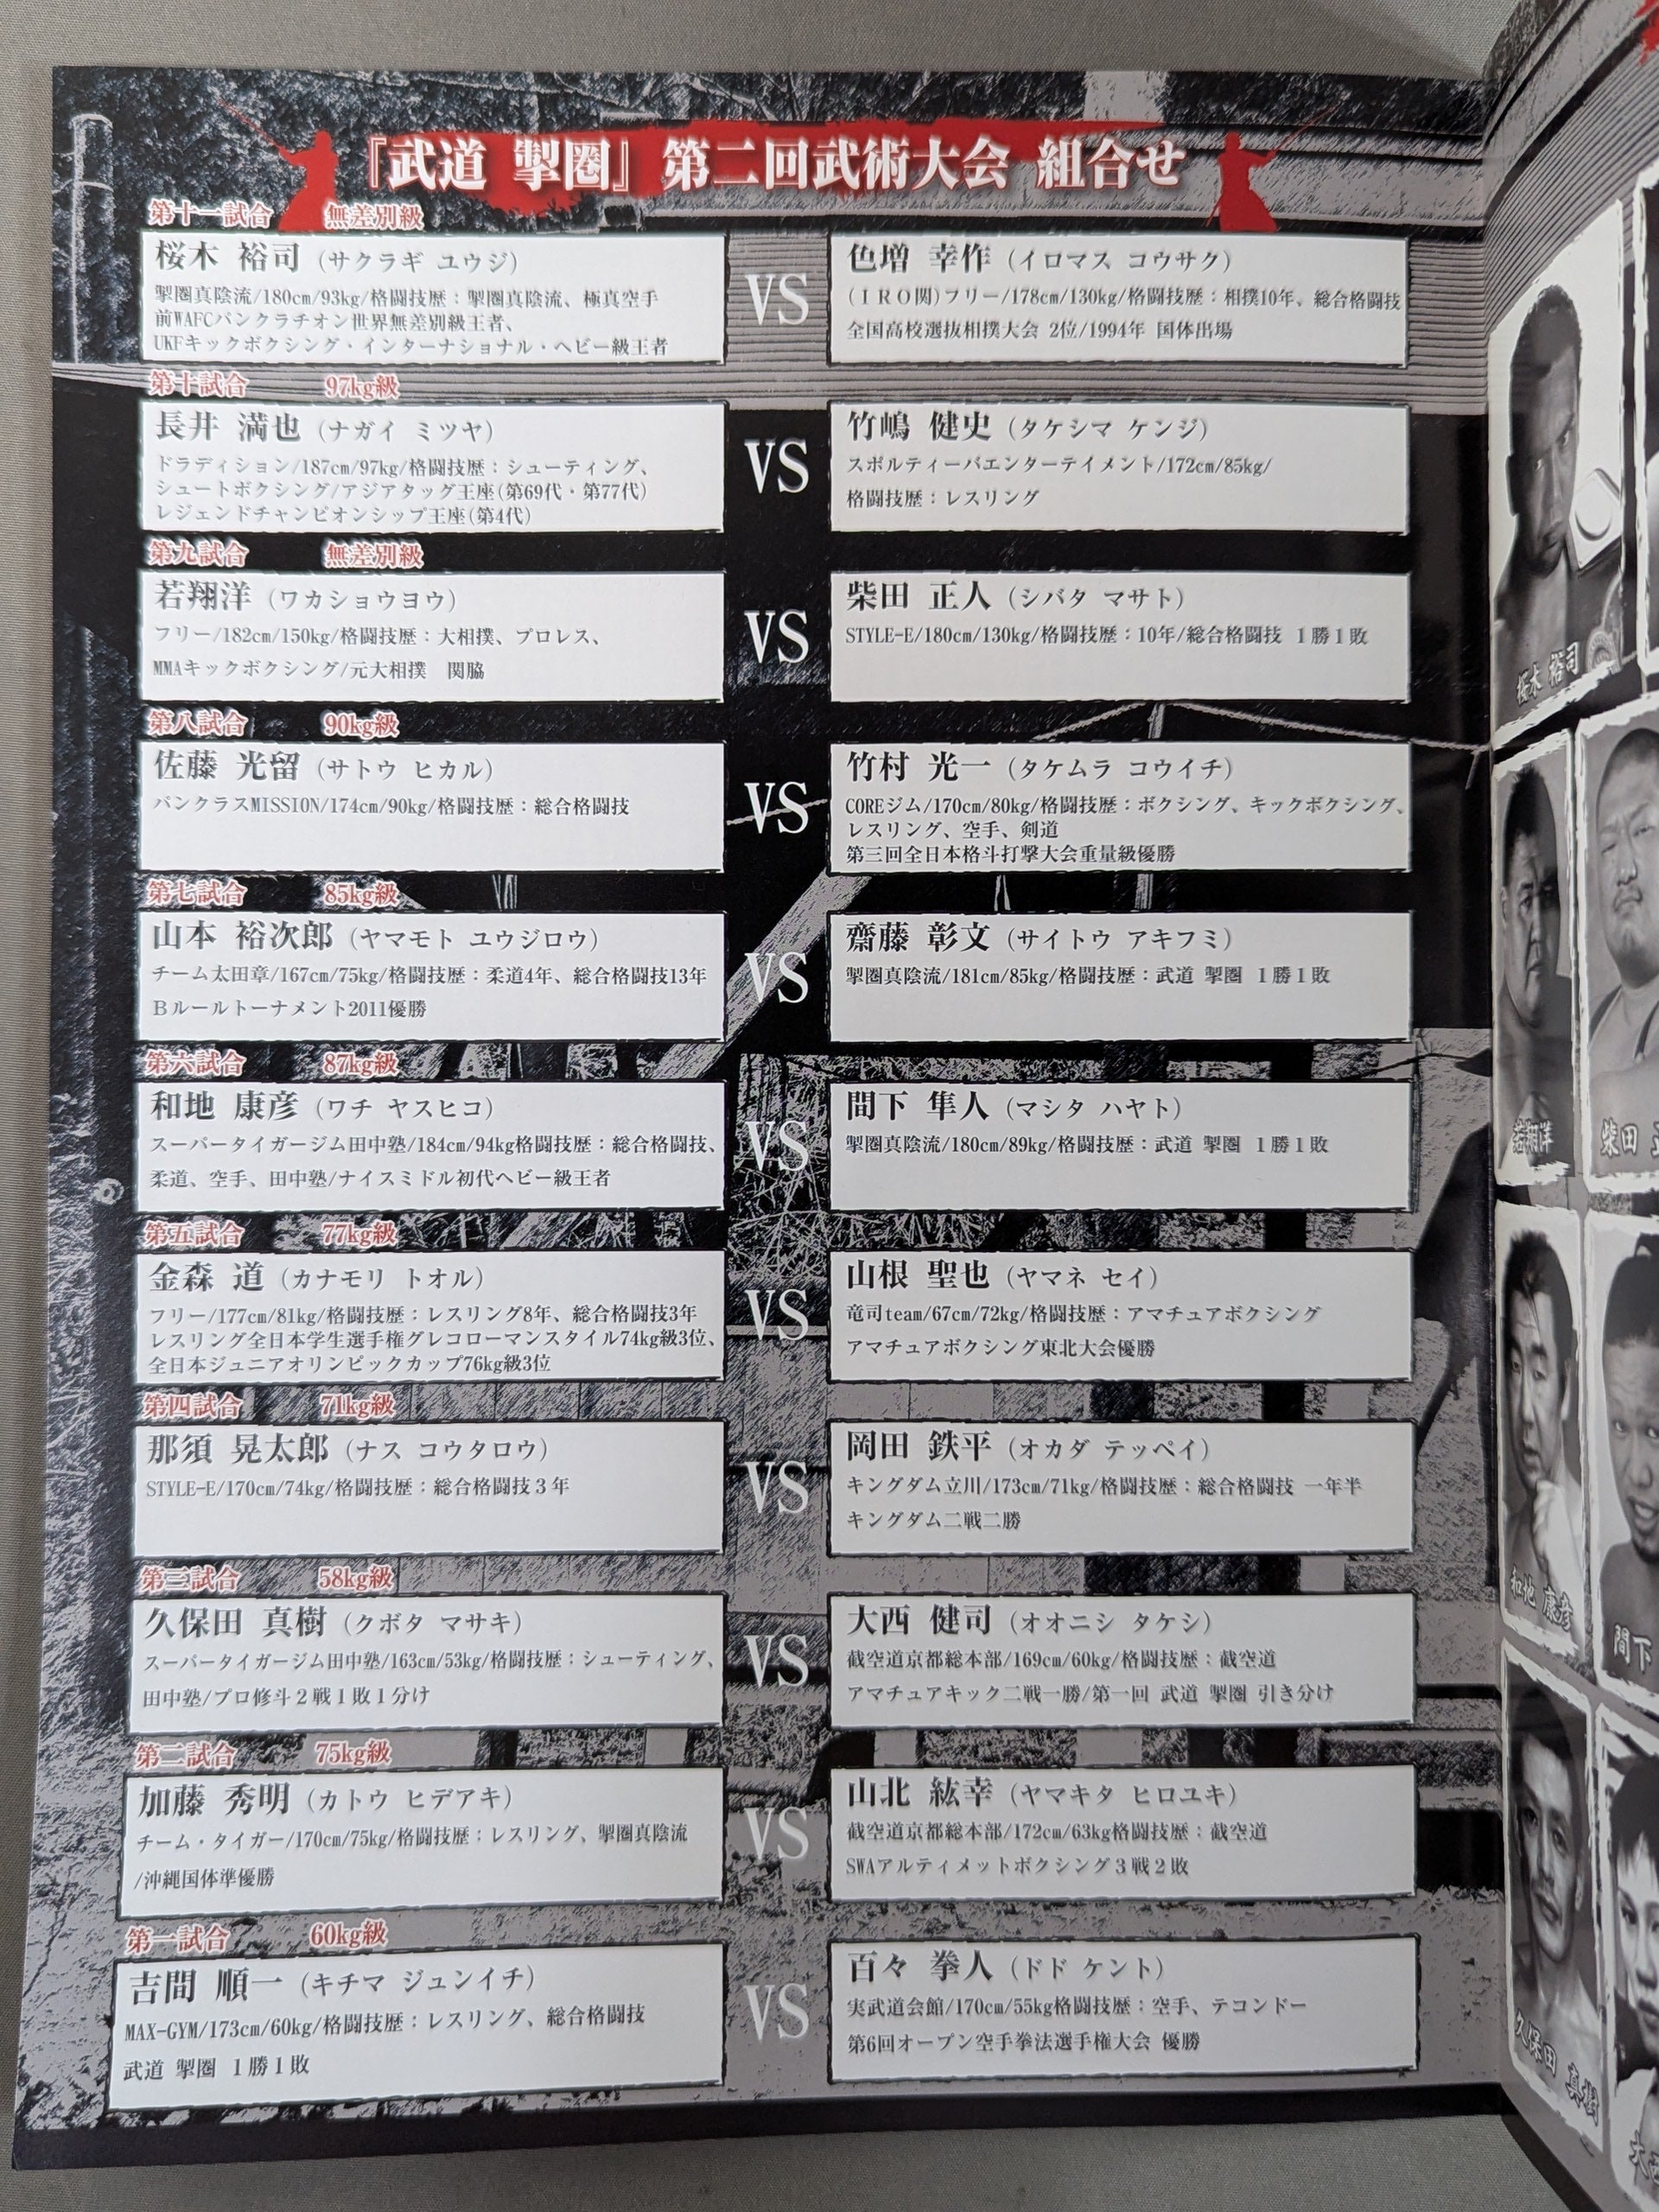 『武道 掣圏』第二回武術大会 組合せ
第十一試合 無差別級
桜木 裕司（サクラギ ユウジ）
掣圏真陰流/180cm/93kg/格闘技歴：掣圏真陰流、極真空手
前WAFCパンクラチオン世界無差別級王者、
UKFキックボクシング・インターナショナル・ヘビー級王者
VS
色増 幸作（イロマス コウサク）
（ＩＲＯ関）フリー/178cm/130kg/格闘技歴：相撲10年、総合格闘技
全国高校選抜相撲大会 2位/1994年 国体出場
第十試合 97kg級
長井 満也（ナガイ ミツヤ）
ドラディション/187cm/97kg/格闘技歴：シューティング、
シュートボクシング/アジアタッグ王座(第69代・第77代)
レジェンドチャンピオンシップ王座(第4代)
VS
竹嶋 健史（タケシマ ケンジ）
スポルティーバエンターテイメント/172cm/85kg/
格闘技歴：レスリング
第九試合 無差別級
若翔洋（ワカショウヨウ）
フリー/182cm/150kg/格闘技歴：大相撲、プロレス、
MMAキックボクシング/元大相撲 関脇
VS
柴田 正人（シバタ マサト）
STYLE-E/180cm/130kg/格闘技歴：10年/総合格闘技 １勝１敗
第八試合 90kg級
佐藤 光留（サトウ ヒカル）
パンクラスMISSION/174cm/90kg/格闘技歴：総合格闘技
VS
竹村 光一（タケムラ コウイチ）
COREジム/170cm/80kg/格闘技歴：ボクシング、キックボクシング、
レスリング、空手、剣道
第三回全日本格斗打撃大会重量級優勝
第七試合 85kg級
山本 裕次郎（ヤマモト ユウジロウ）
チーム太田章/167cm/75kg/格闘技歴：柔道4年、総合格闘技13年
Ｂルールトーナメント2011優勝
VS
齋藤 彰文（サイトウ アキフミ）
掣圏真陰流/181cm/85kg/格闘技歴：武道 掣圏 １勝１敗
第六試合 87kg級
和地 康彦（ワチ ヤスヒコ）
スーパータイガージム田中塾/184cm/94kg格闘技歴：総合格闘技、
柔道、空手、田中塾/ナイスミドル初代ヘビー級王者
VS
間下 隼人（マシタ ハヤト）
掣圏真陰流/180cm/89kg/格闘技歴：武道 掣圏 １勝１敗
第五試合 77kg級
金森 道（カナモリ トオル）
フリー/177cm/81kg/格闘技歴：レスリング8年、総合格闘技3年
レスリング全日本学生選手権グレコローマンスタイル74kg級3位、
全日本ジュニアオリンピックカップ76kg級3位
VS
山根 聖也（ヤマネ セイ）
竜司team/67cm/72kg/格闘技歴：アマチュアボクシング
アマチュアボクシング東北大会優勝
第四試合 71kg級
那須 晃太郎（ナス コウタロウ）
STYLE-E/170cm/74kg/格闘技歴：総合格闘技３年
VS
岡田 鉄平（オカダ テッペイ）
キングダム立川/173cm/71kg/格闘技歴：総合格闘技 一年半
キングダム二戦二勝
第三試合 58kg級
久保田 真樹（クボタ マサキ）
スーパータイガージム田中塾/163cm/53kg/格闘技歴：シューティング、
田中塾/プロ修斗２戦１敗１分け
VS
大西 健司（オオニシ タケシ）
截空道京都総本部/169cm/60kg/格闘技歴：截空道
アマチュアキック二戦一勝/第一回 武道 掣圏 引き分け
第二試合 75kg級
加藤 秀明（カトウ ヒデアキ）
チーム・タイガー/170cm/75kg/格闘技歴：レスリング、掣圏真陰流
/沖縄国体準優勝
VS
山北 紘幸（ヤマキタ ヒロユキ）
截空道京都総本部/172cm/63kg格闘技歴：截空道
SWAアルティメットボクシング３戦２敗
第一試合 60kg級
吉間 順一（キチマ ジュンイチ）
MAX-GYM/173cm/60kg/格闘技歴：レスリング、総合格闘技
武道 掣圏 １勝１敗
VS
百々 拳人（ドド ケント）
実武道会館/170cm/55kg格闘技歴：空手、テコンドー
第6回オープン空手拳法選手権大会 優勝
桜木 裕司
若翔洋
柴田
和地 康彦
間下
久保田 真樹